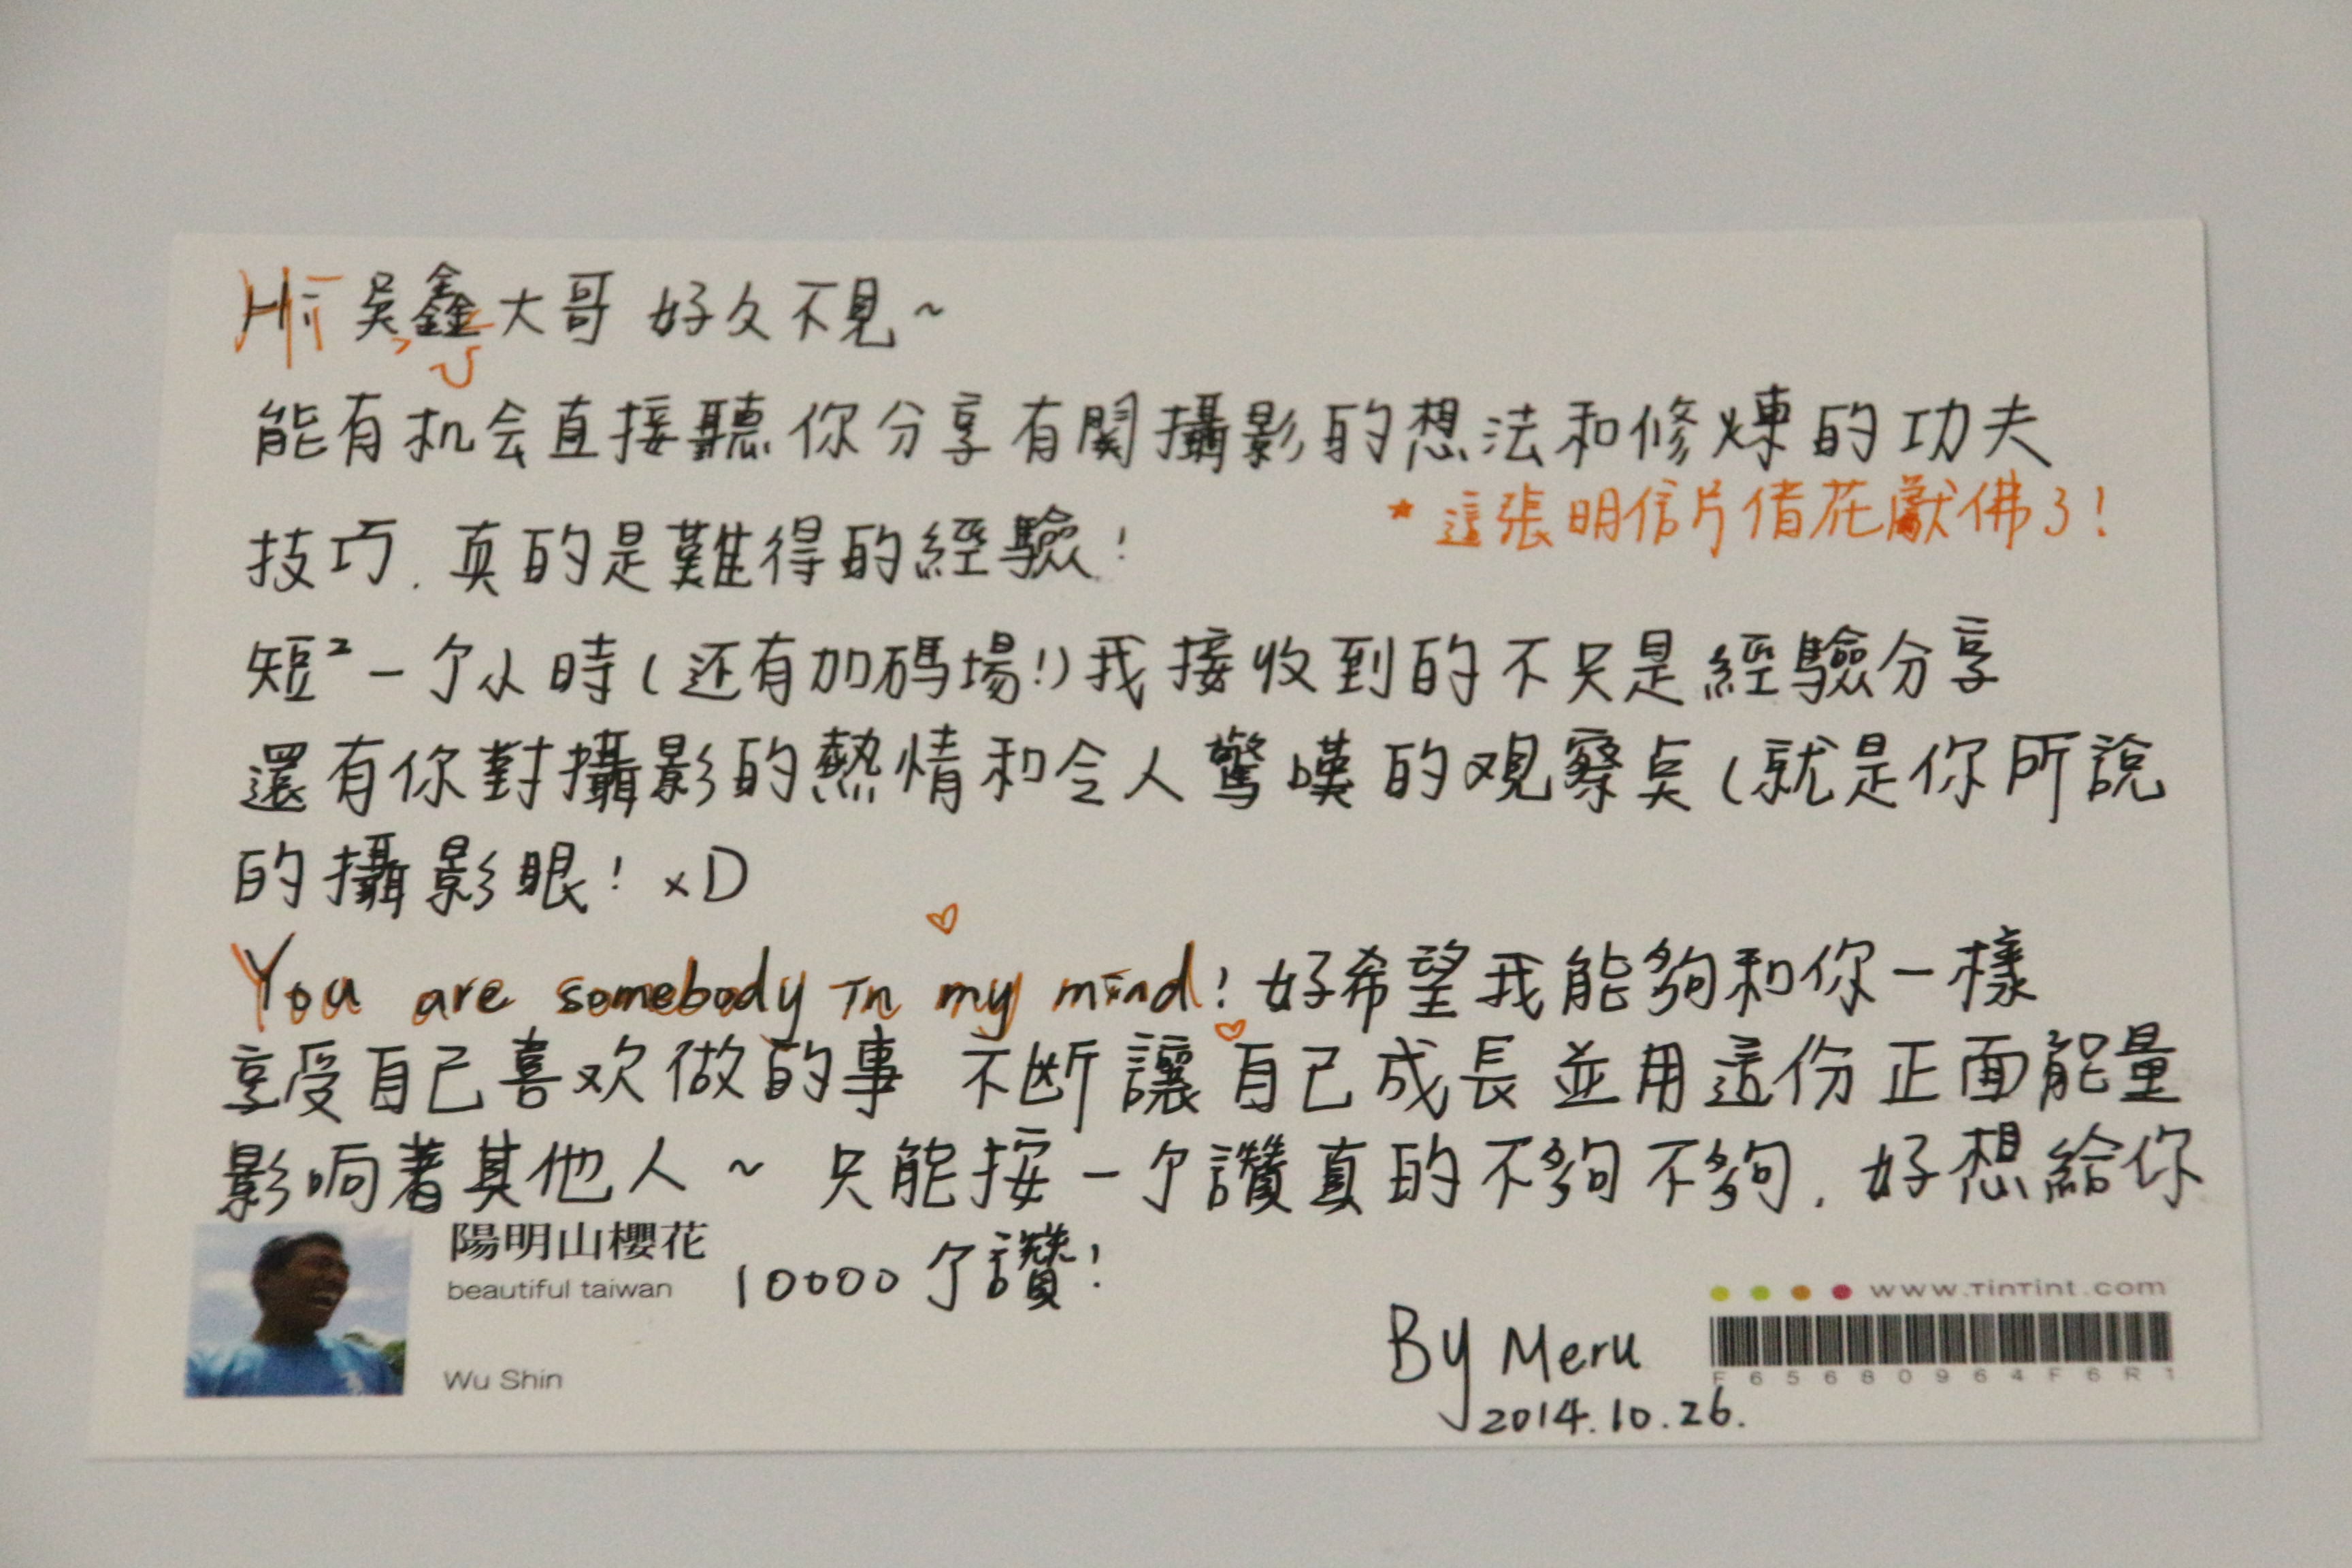 Hi 吳鑫大哥 好久不見~
能有机会直接聽你分享有關攝影的想法和修煉的功夫
*這張明信片借花獻佛了!
技巧.真的是難得的經驗!
短²一个小時(还有加碼場!)我接收到的不只是經驗分享
還有你對攝影的熱情和令人驚嘆的观察点(就是你所說
的攝影眼! xD
You are somebody in my mind! 好希望我能夠和你一樣
享受自己喜欢做的事 不断讓自己成長並用這份正面能量
影响著其他人~ 只能按一个讚真的不夠不夠.好想給你
10000个讚!
陽明山櫻花
beautiful taiwan
Wu Shin
By Meru
2014.10.26.
www.TinTint.com
F65680964F6R1